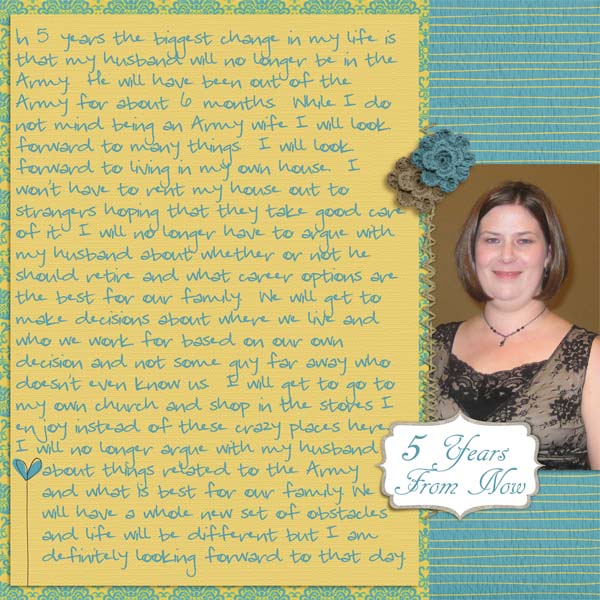 In 5 years the biggest change in my life is
that my husband will no longer be in the
Army. He will have been out of the
Army for about 6 months. While I do
not mind being an Army wife I will look
forward to many things. I will look
forward to living in my own house. I
won't have to rent my house out to
strangers hoping that they take good care
of it. I will no longer have to argue with
my husband about whether or not he
should retire and what career options are
the best for our family. We will get to
make decisions about where we live and
who we work for based on our own
decision and not some guy far away who
doesn't even know us. I will get to go to
my own church and shop in the stores I
enjoy instead of these crazy places here.
I will no longer argue with my husband
about things related to the Army
and what is best for our family. We
will have a whole new set of obstacles
and life will be different but I am
definitely looking forward to that day.
5 Years
From Now